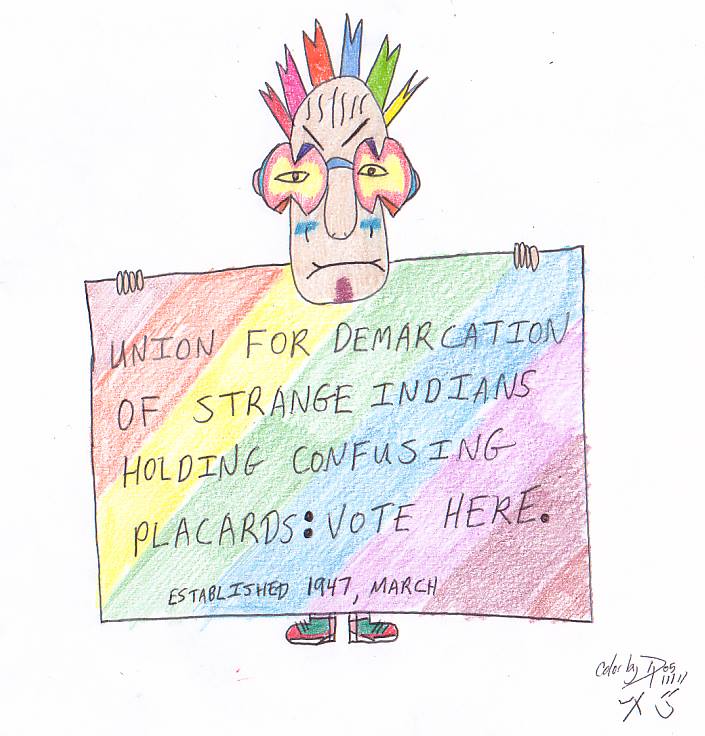 UNION FOR DEMARCATION
OF STRANGE INDIANS
HOLDING CONFUSING
PLACARDS: VOTE HERE.
ESTABLISHED 1947, MARCH
Color by